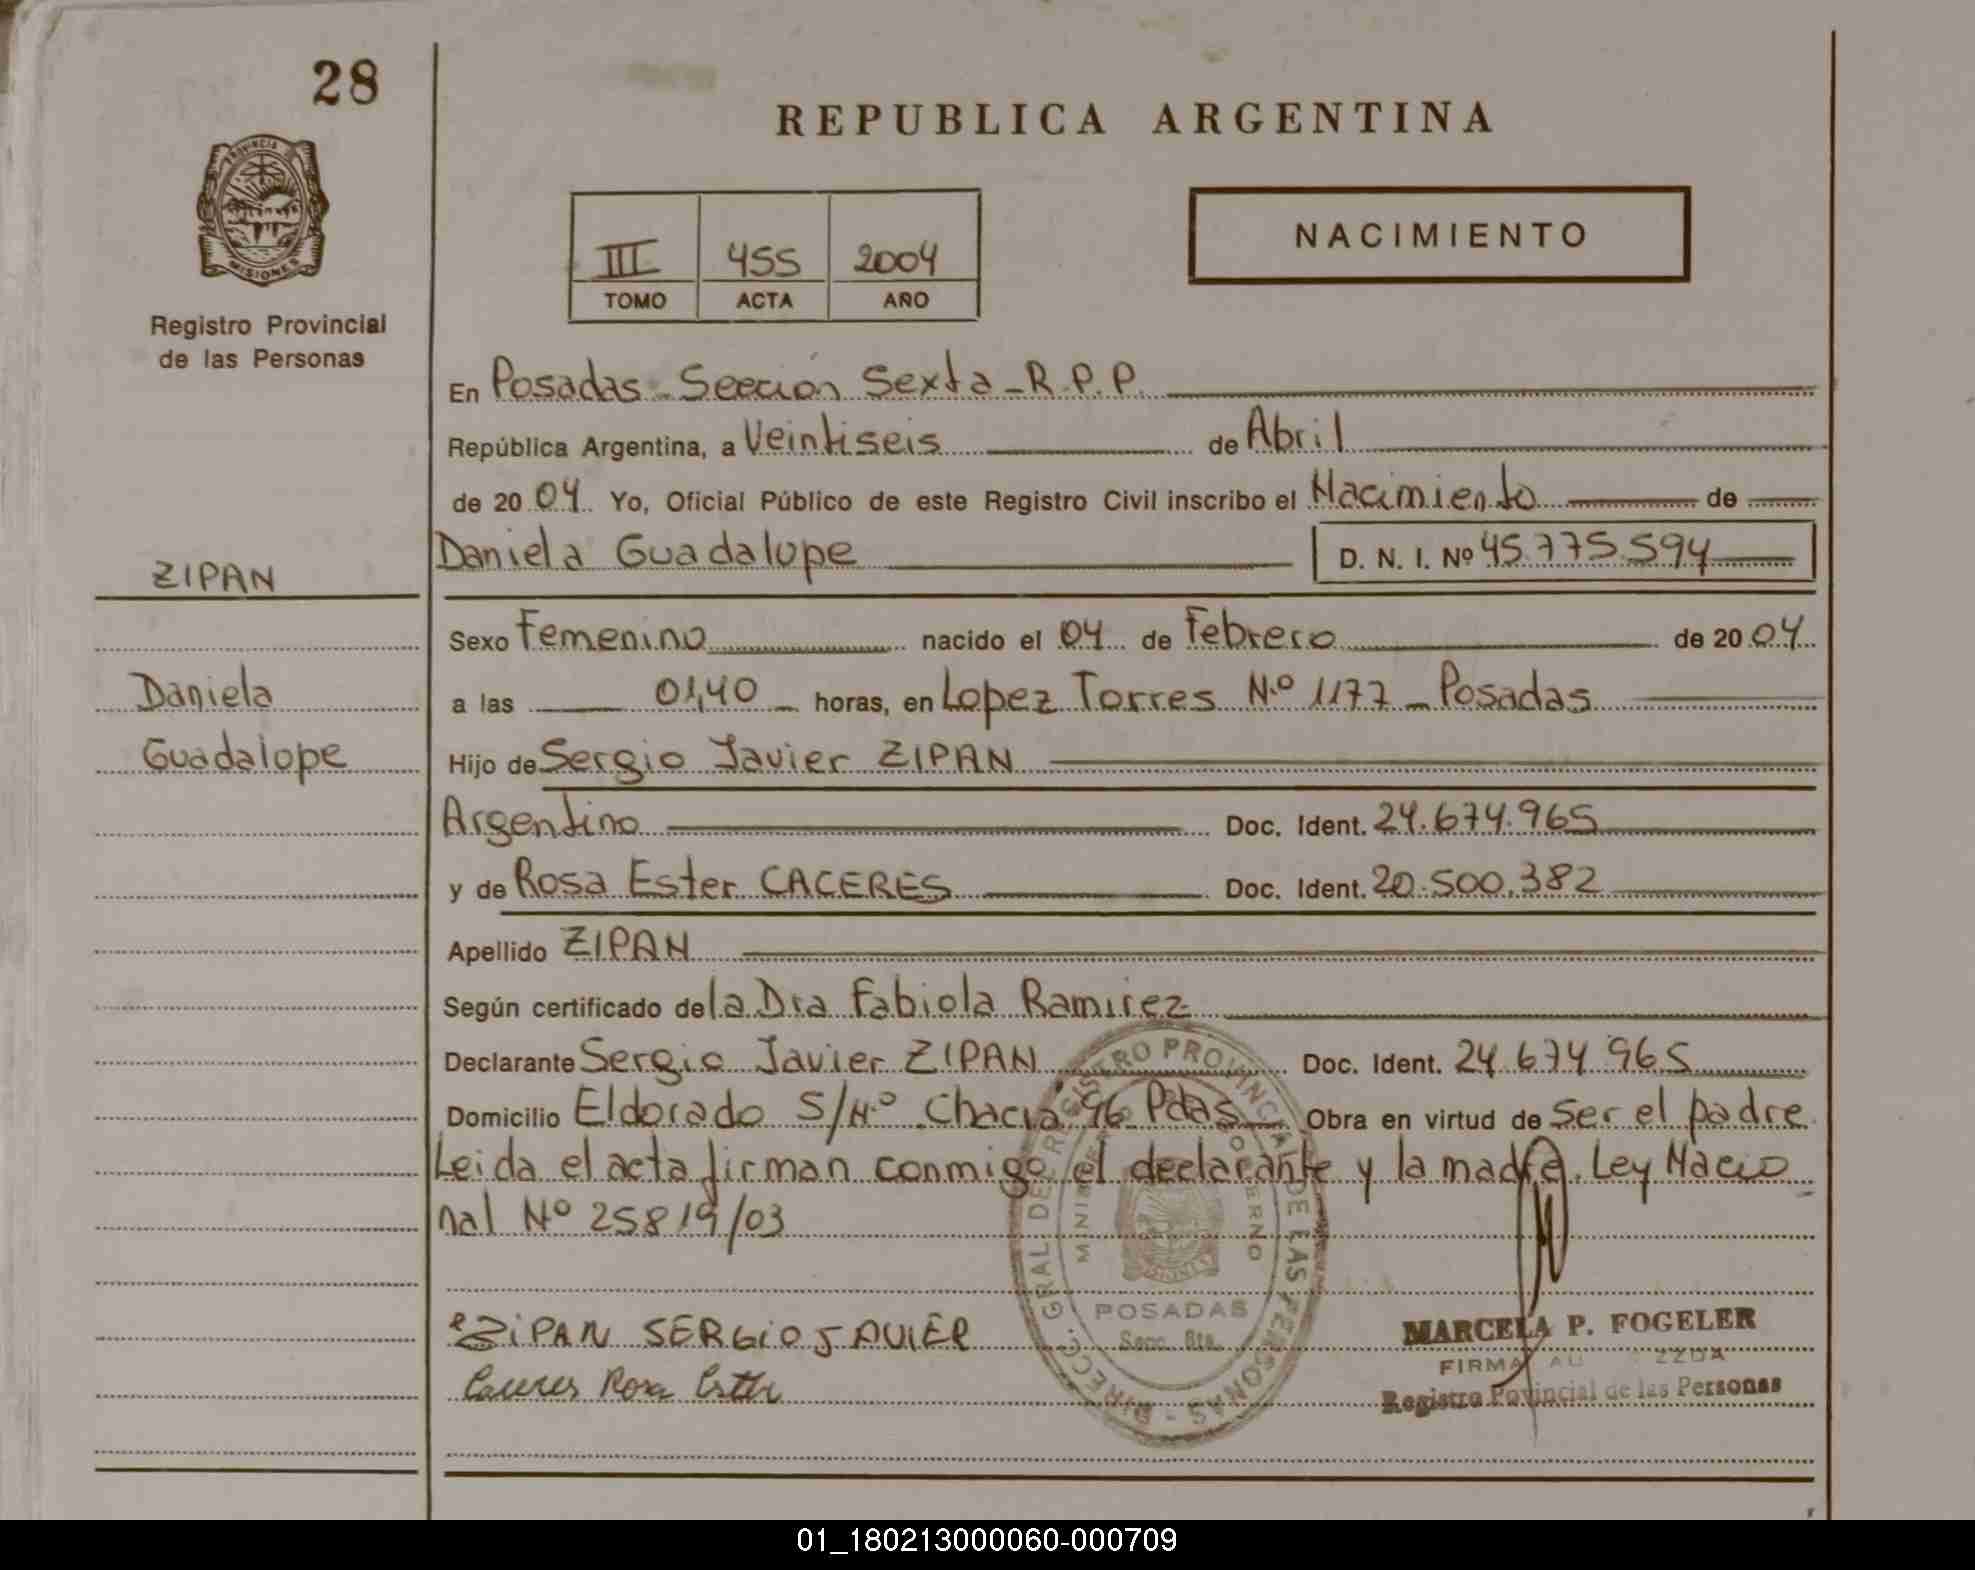 28
REPUBLICA ARGENTINA
PROVINCIA DE
MISIONES
Registro Provincial
de las Personas
III 455 2004
TOMO ACTA AÑO
NACIMIENTO
En Posadas - Sección Sexta - R.P.P.
República Argentina, a Veintiseis de Abril
de 2004 Yo, Oficial Público de este Registro Civil inscribo el Nacimiento de
Daniela Guadalupe D. N. I. Nº 45.775.594
ZIPAN
Daniela
Guadalupe
Sexo Femenino nacido el 04 de Febrero de 2004
a las 01,40 horas, en Lopez Torres N.º 1177 - Posadas
Hijo de Sergio Javier ZIPAN
Argentino Doc. Ident. 24.674.965
y de Rosa Ester CACERES Doc. Ident. 20.500.382
Apellido ZIPAN
Según certificado de la Dra Fabiola Ramirez
Declarante Sergio Javier ZIPAN Doc. Ident. 24.674.965
Domicilio Eldorado S/N.º Chacra 96 Pdas Obra en virtud de Ser el padre
Leida el acta firman conmigo el declarante y la madre. Ley Nacio
nal Nº 25819/03
DIRECC. GRAL DE REGISTRO PROVINCIAL DE LAS PERSONAS
POSADAS
Secc. 6ta.
ZIPAN SERGIO JAVIER
Caceres Rosa Ester
MARCELA P. FOGELER
FIRMA
Registro Povincial de las Personas
01_180213000060-000709